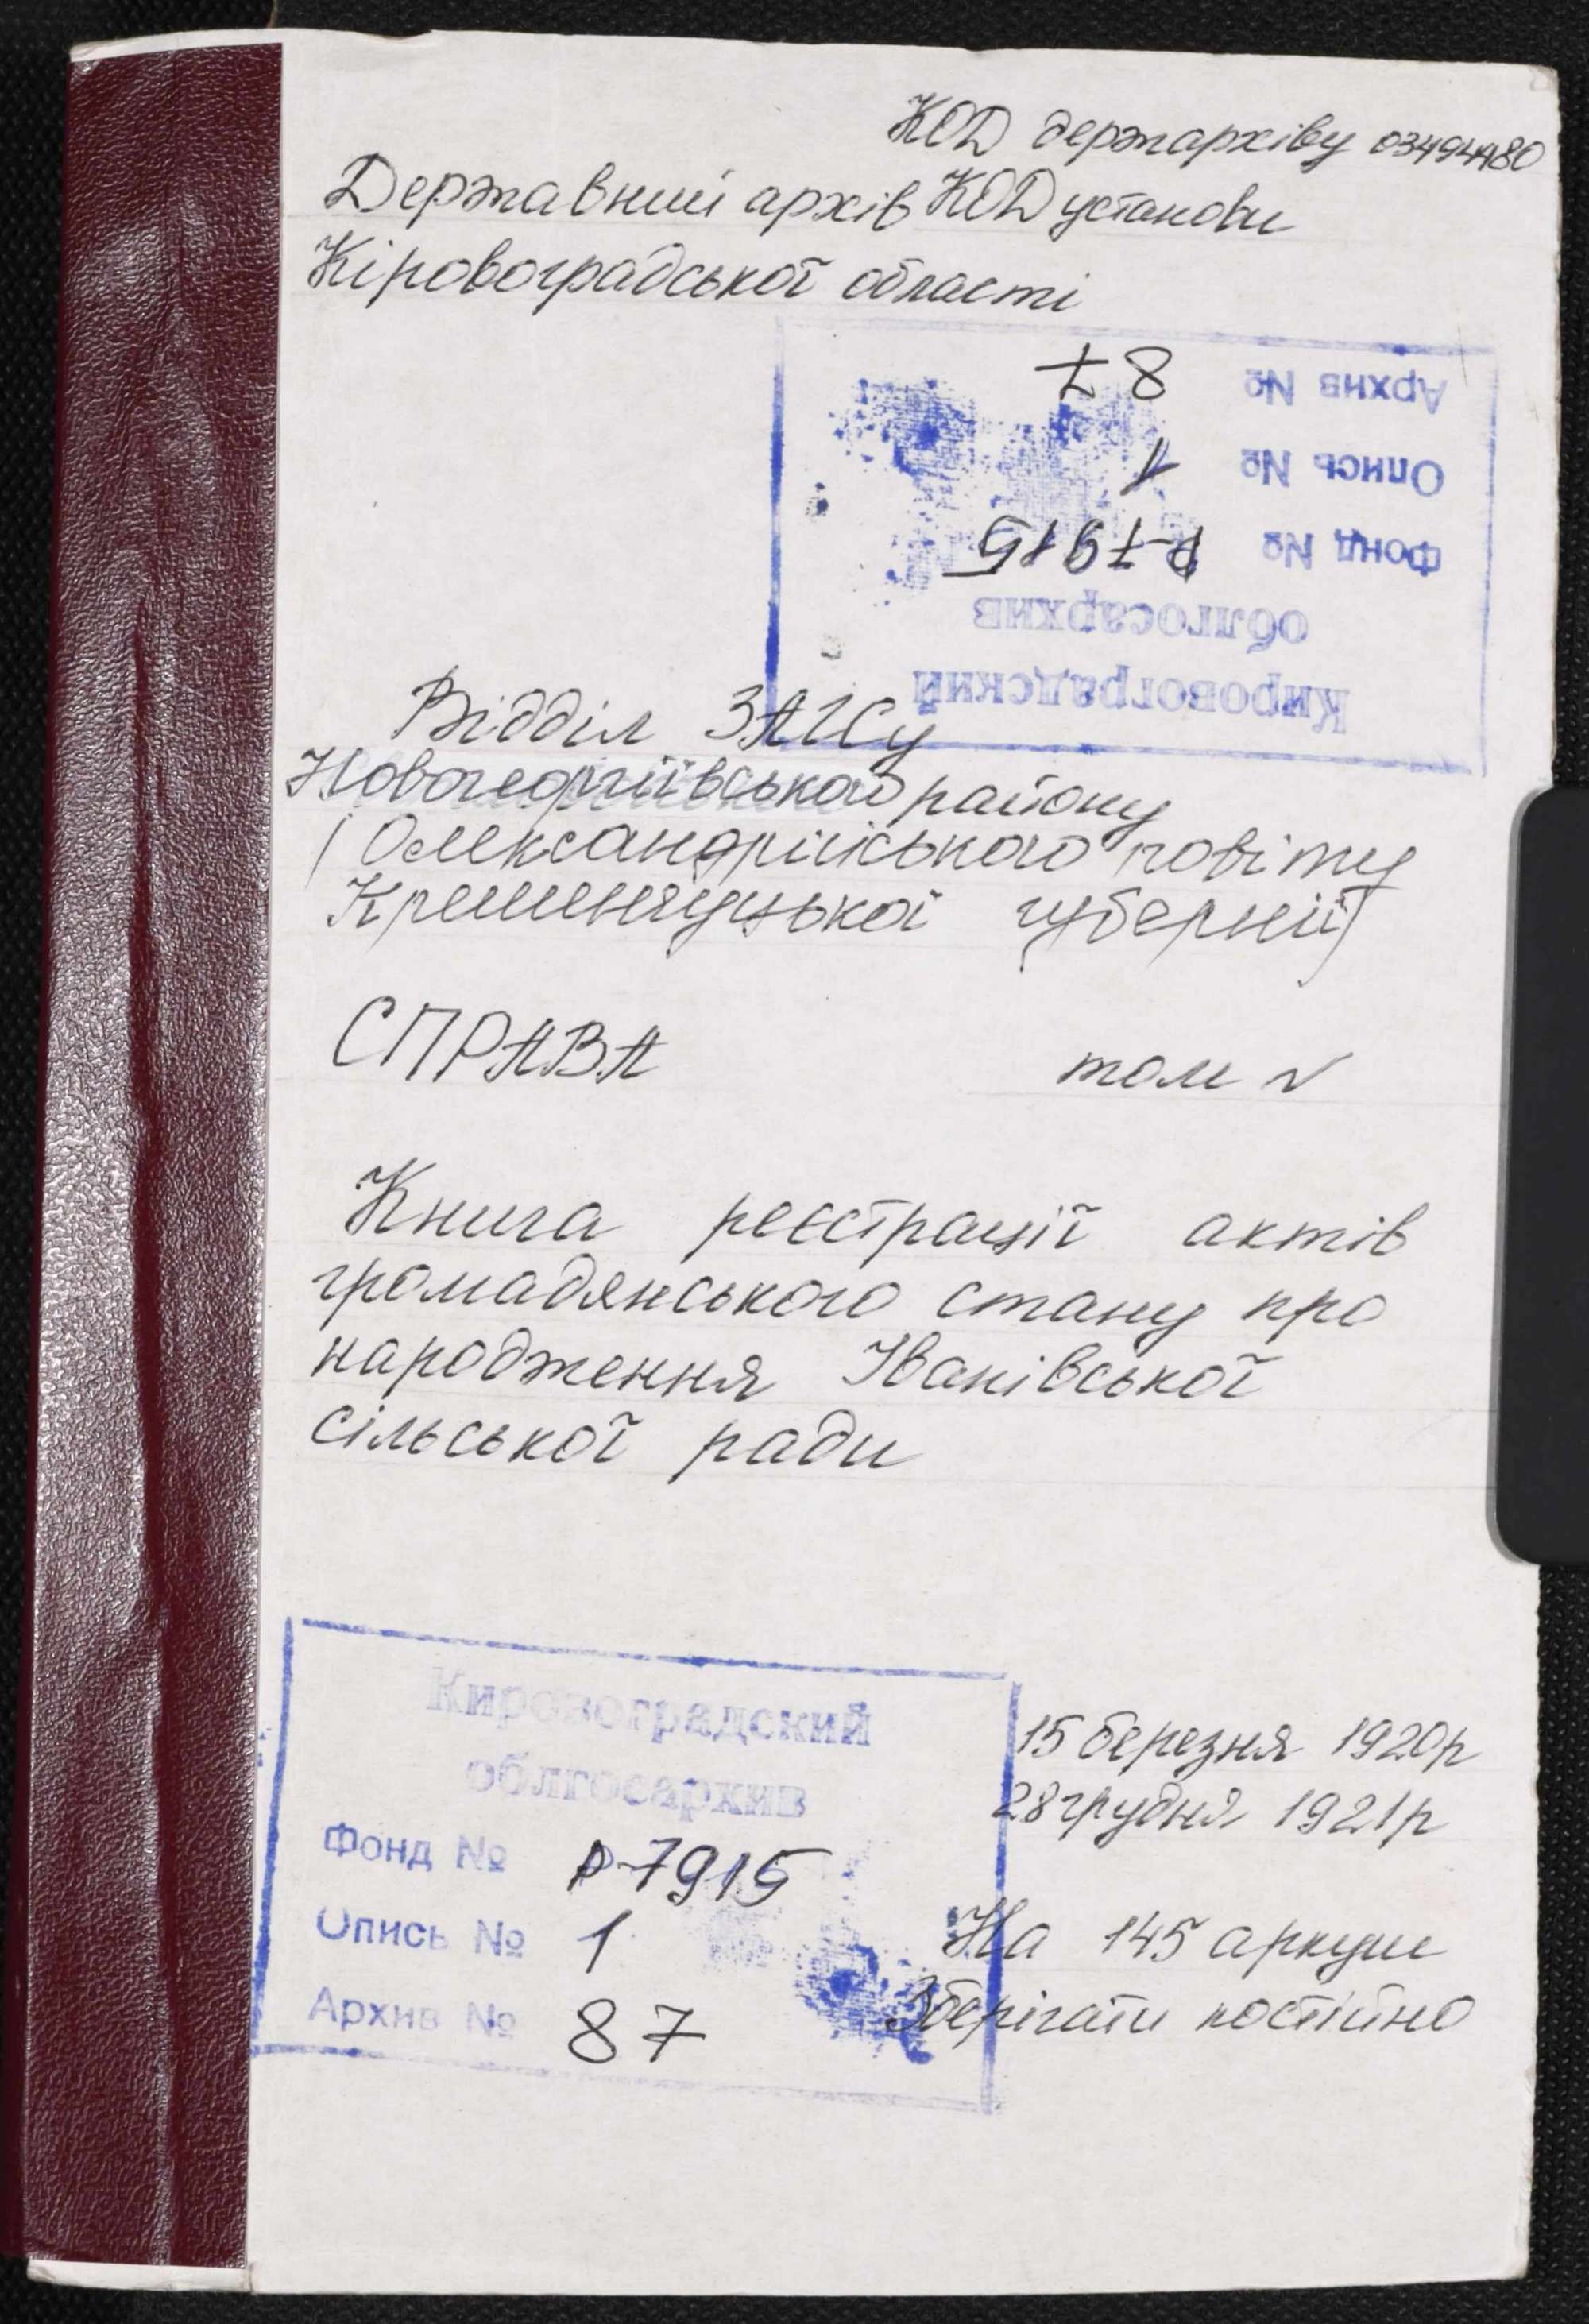 КОД держархіву 03494480
Державний архів КОД установи
Кіровоградської області
Кировоградский
облгосархив
Фонд № Р-7915
Опись № 1
Архив № 87
Відділ ЗАГСу
Новогеоргіївського району
(Олександрійського повіту
Кременчуцької губернії)
СПРАВА том №
Книга реєстрації актів
громадянського стану про
народження Іванівської
сільської ради
Кировоградский
облгосархив
Фонд № Р-7915
Опись № 1
Архив № 87
15 березня 1920р
28 грудня 1921р
На 145 аркуш
Зберігати постійно